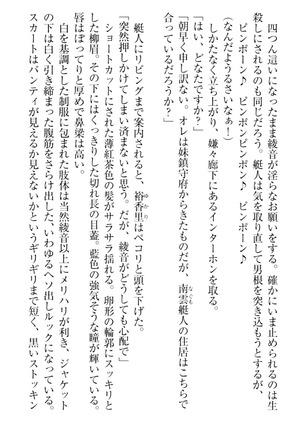 四つん這いになったまま綾音が淫らなお願いをする。確かにいま止められるのは生
殺しにされるのも同じだろう。艇人は気を取り直して男根を突き込もうとするが、
ピンポーン♪　ピンポンピンポン♪　ピンポーン♪
(なんだようるさいなぁ！)
しかたなく立ち上がり、嫌々廊下にあるインターホンを取る。
「はい、どなたですか？」
「朝早く申し訳ない。オレは妹鎮守府からきたものだが、南雲艇人の住居はこちらで
合っているだろうか？」
艇人にリビングまで案内されると、裕香里はペコリと頭を下げた。
「突然押しかけてしまい済まないと思う。だが、綾音がどうしても心配で」
ショートカットにされた薄紅茶色の髪がサラサラ揺れる。卵形の輪郭にスッキリと
した柳眉。その下にはくっきりした切れ長の目蓋。藍色の強気そうな瞳が輝いている。
唇はぽってりと厚めで鼻梁は高い。
白を基調とした制服に包まれた肢体は当然綾音以上にメリハリが利き、ジャケット
の下は白く引き締まった腹筋をさらけ出した、いわゆるヘソ出しルックになっている。
スカートはパンティが見えるか見えないかというギリギリまで短く、黒いストッキン